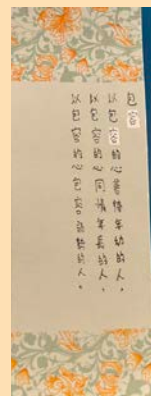 包容
以包容的心年幼的人,
以包容的心同情年長的人,
以包容的心包容弱勢的人。